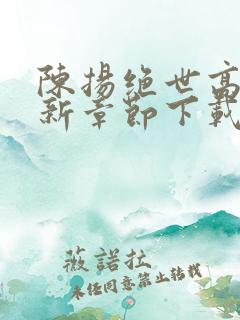 陳揚絕世高
新章節下載
薇諾拉
未經同意禁止轉載